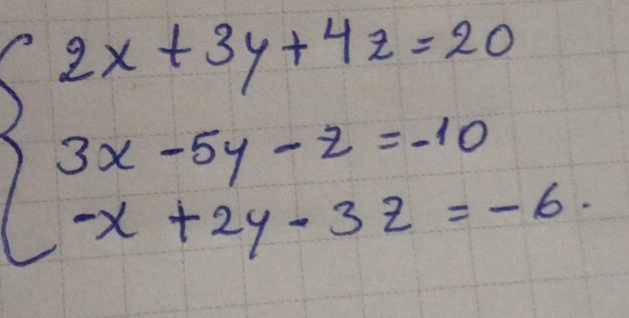 2x + 3y + 4z = 20
3x - 5y - z = -10
-x + 2y - 3z = -6.